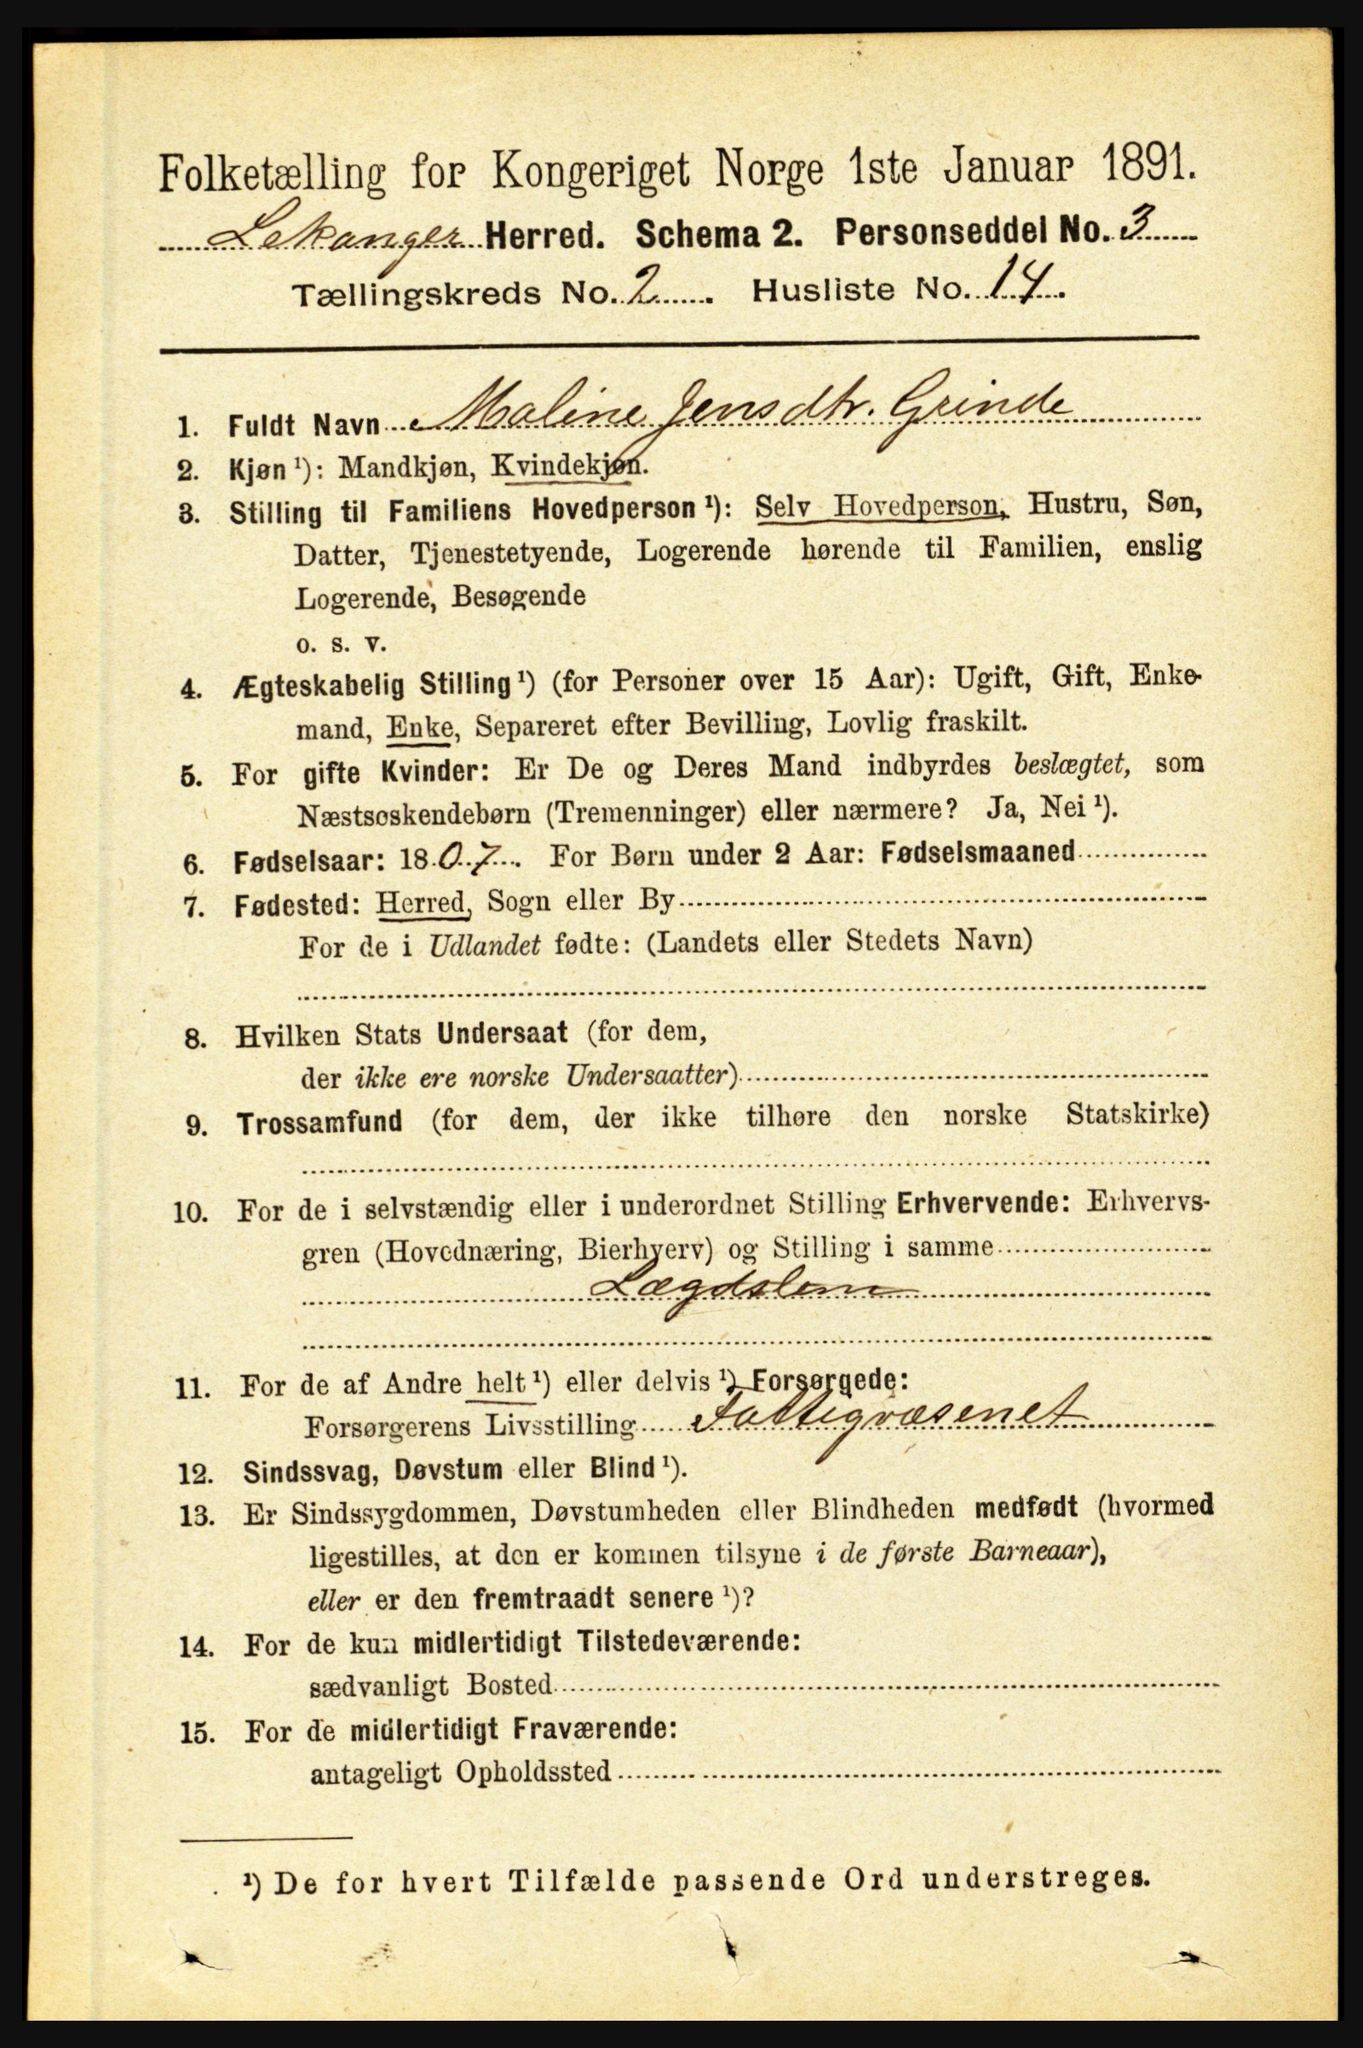 Folketælling for Kongeriget Norge 1ste Januar 1891.
Lekanger Herred. Schema 2. Personseddel No. 3
Tællingskreds No. 2. Husliste No. 14.
1. Fuldt Navn Maline Jensdtr. Grinde
2. Kjøn ¹): Mandkjøn, Kvindekjøn.
3. Stilling til Familiens Hovedperson ¹): Selv Hovedperson, Hustru, Søn,
Datter, Tjenestetyende, Logerende hørende til Familien, enslig
Logerende, Besøgende
o. s. v.
4. Ægteskabelig Stilling ¹) (for Personer over 15 Aar): Ugift, Gift, Enke-
mand, Enke, Separeret efter Bevilling, Lovlig fraskilt.
5. For gifte Kvinder: Er De og Deres Mand indbyrdes beslægtet, som
Næstsøskendebørn (Tremenninger) eller nærmere? Ja, Nei ¹).
6. Fødselsaar: 1807. For Børn under 2 Aar: Fødselsmaaned
7. Fødested: Herred, Sogn eller By
For de i Udlandet fødte: (Landets eller Stedets Navn)
8. Hvilken Stats Undersaat (for dem,
der ikke ere norske Undersaatter)
9. Trossamfund (for dem, der ikke tilhøre den norske Statskirke)
10. For de i selvstændig eller i underordnet Stilling Erhvervende: Erhvervs-
gren (Hovednæring, Bierhverv) og Stilling i samme
Lægdslem
11. For de af Andre helt ¹) eller delvis ¹) Forsørgede:
Forsørgerens Livsstilling Fattigvæsenet
12. Sindssvag, Døvstum eller Blind ¹).
13. Er Sindssygdommen, Døvstumheden eller Blindheden medfødt (hvormed
ligestilles, at den er kommen tilsyne i de første Barneaar),
eller er den fremtraadt senere ¹)?
14. For de kun midlertidigt Tilstedeværende:
sædvanligt Bosted
15. For de midlertidigt Fraværende:
antageligt Opholdssted
¹) De for hvert Tilfælde passende Ord understreges.